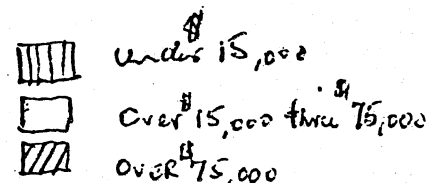 under $15,000
Over $15,000 thru $75,000
OVER $75,000